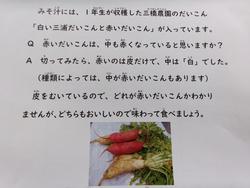 みそ汁には、1年生が収穫した三橋農園のだいこん
「白い三浦だいこんと赤いだいこん」が入っています。
Q 赤いだいこんは、中も赤くなっていると思いますか？
A 切ってみたら、赤いのは皮だけで、中は「白」でした。
（種類によっては、中が赤いだいこんもあります）
皮をむいているので、どれが赤いだいこんかわかり
ませんが、どちらもおいしいので味わって食べましょう。